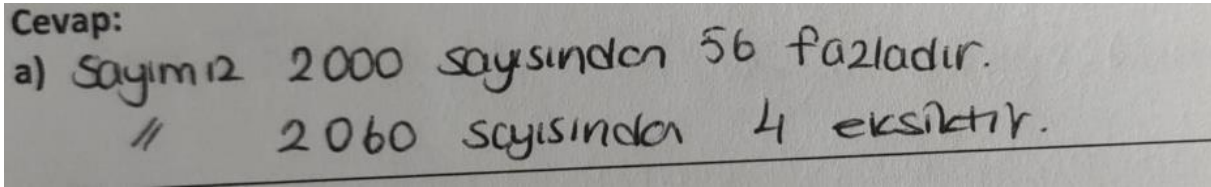 Cevap:
a) Sayımız 2000 sayısından 56 fazladır.
" 2060 sayısından 4 eksiktir.